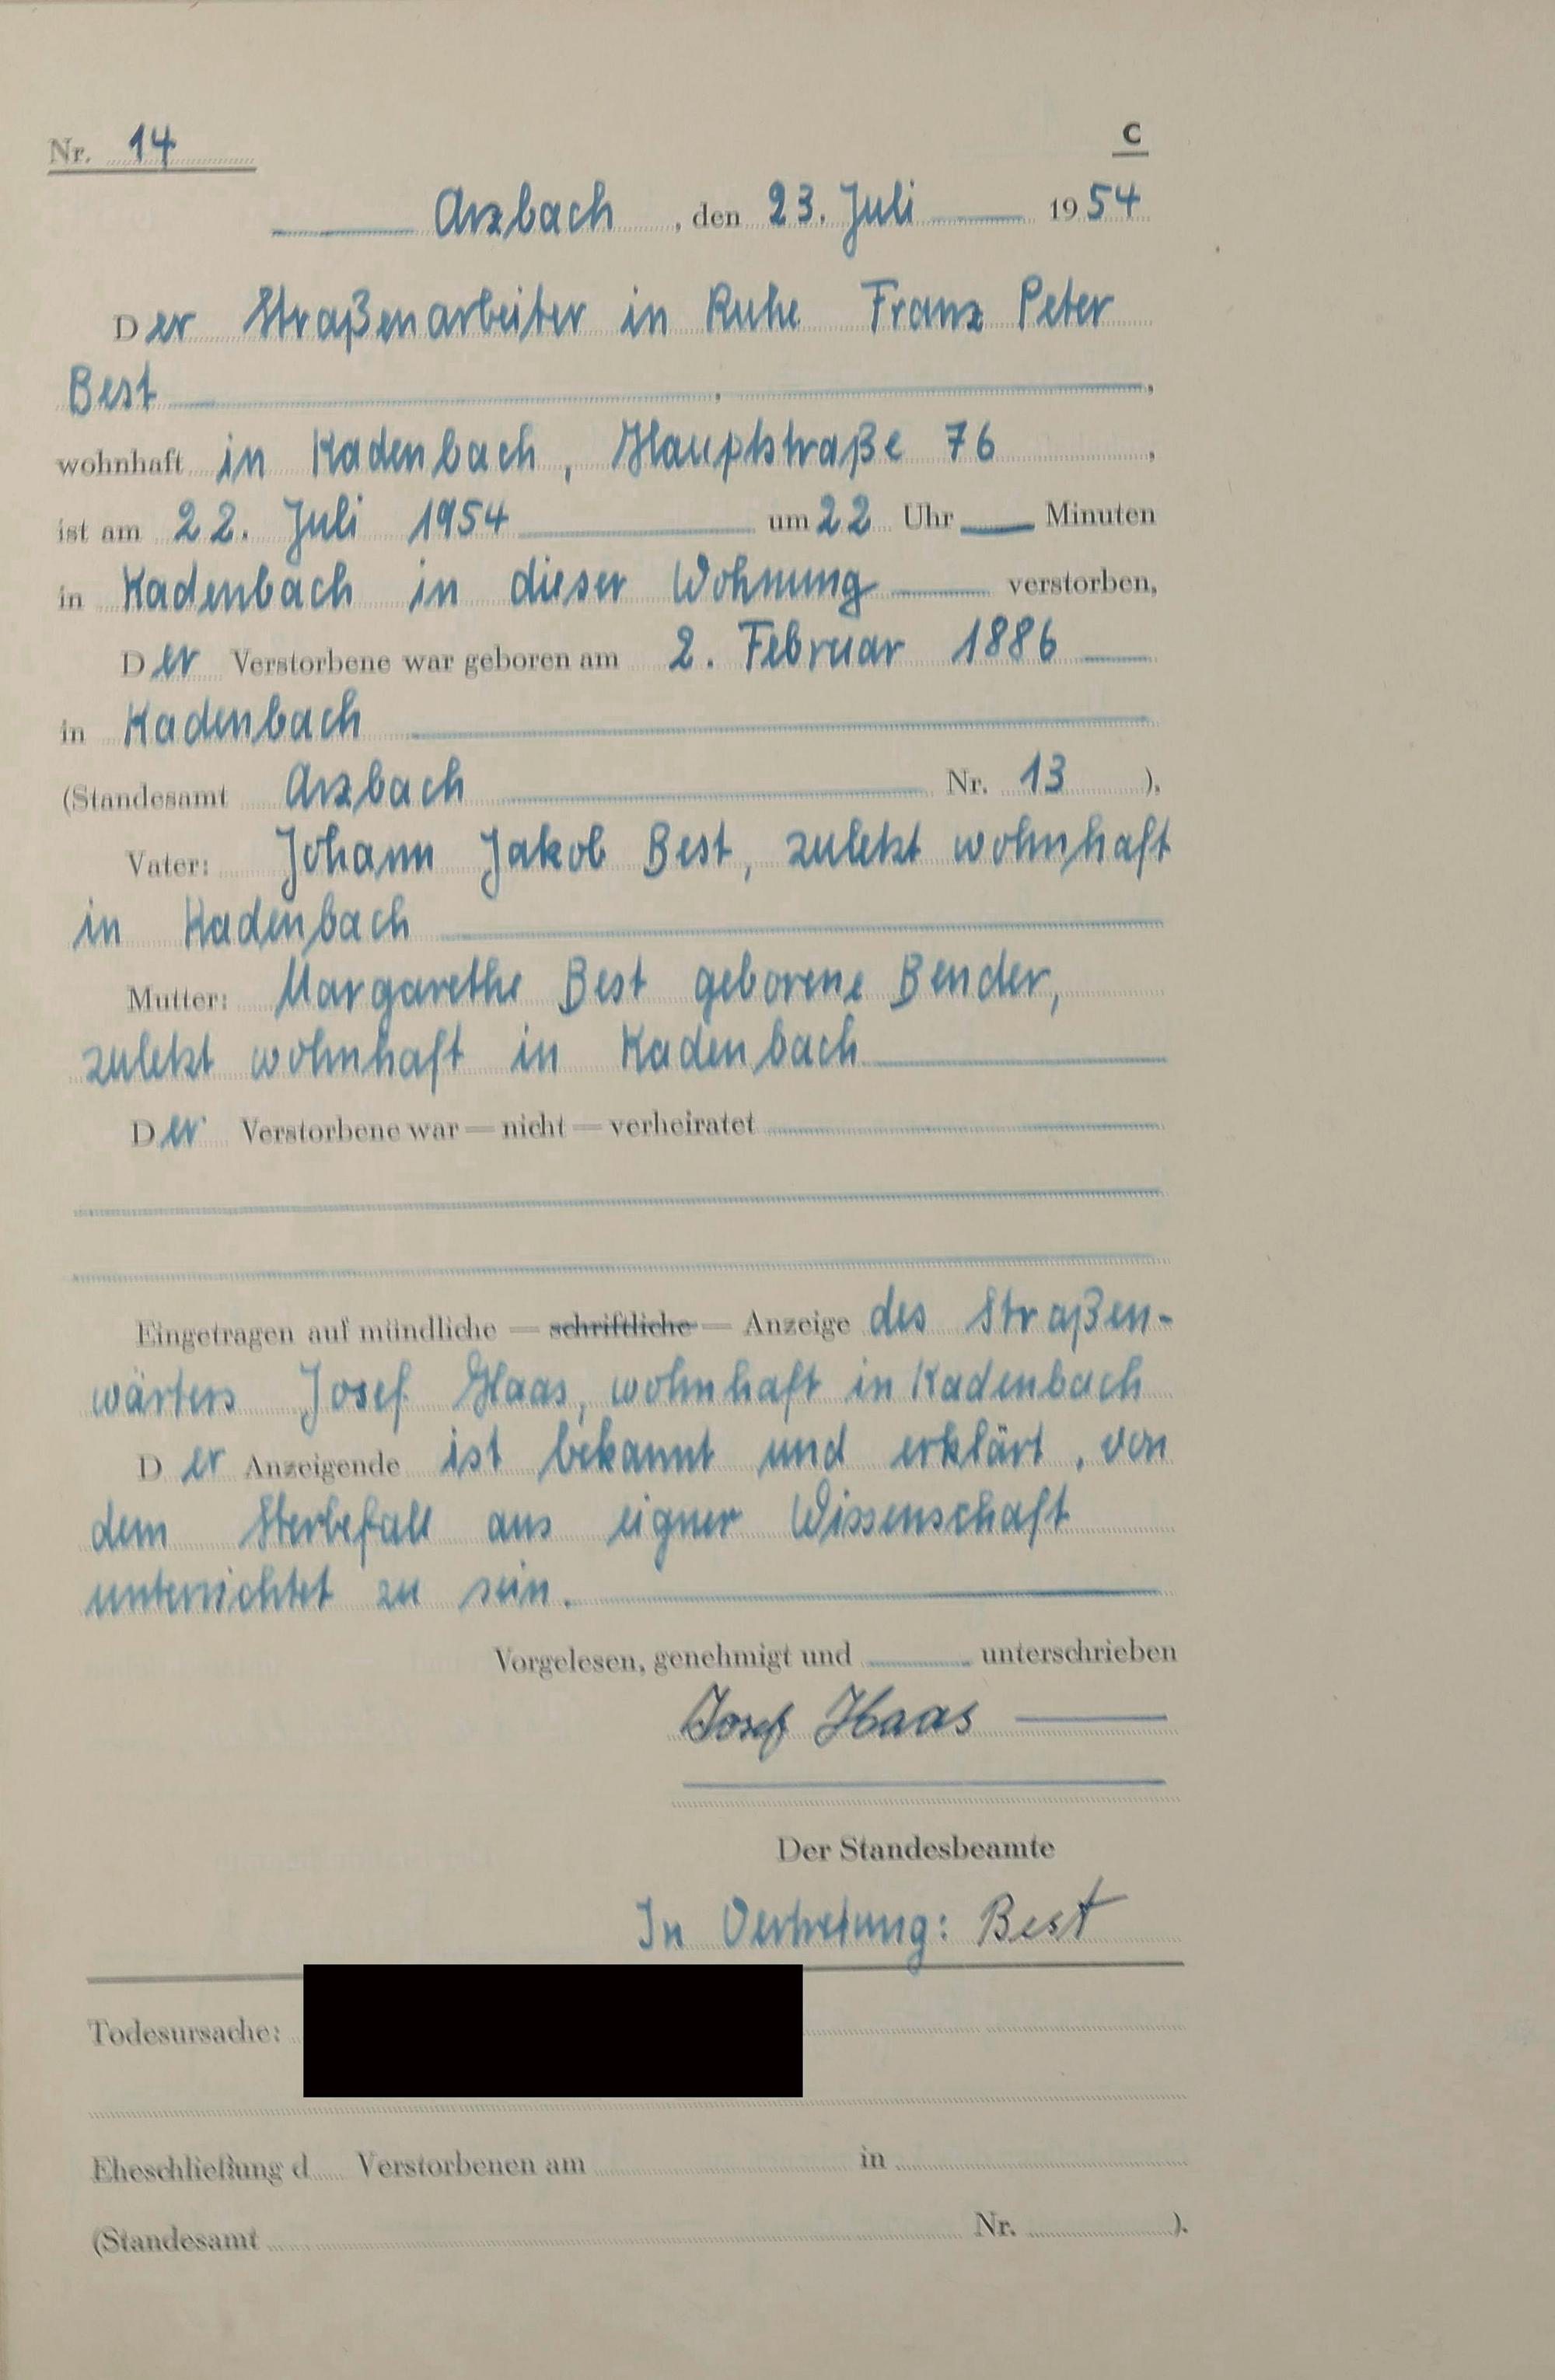 Nr. 14
C
Arzbach, den 23. Juli 1954
Der Straßenarbeiter in Ruhe Franz Peter
Best,
wohnhaft in Kadenbach, Hauptstraße 76,
ist am 22. Juli 1954 um 22 Uhr — Minuten
in Kadenbach in dieser Wohnung verstorben,
Der Verstorbene war geboren am 2. Februar 1886
in Kadenbach
(Standesamt Arzbach Nr. 13),
Vater: Johann Jakob Best, zuletzt wohnhaft
in Kadenbach
Mutter: Margarethe Best geborene Bender,
zuletzt wohnhaft in Kadenbach
Der Verstorbene war — nicht — verheiratet
Eingetragen auf mündliche — schriftliche — Anzeige des Straßen-
wärters Josef Haas, wohnhaft in Kadenbach
Der Anzeigende ist bekannt und erklärt, von
dem Sterbefall aus eigner Wissenschaft
unterrichtet zu sein.
Vorgelesen, genehmigt und — unterschrieben
Josef Haas
Der Standesbeamte
In Vertretung: Best
Todesursache:
Eheschließung d Verstorbenen am in
(Standesamt Nr. ).